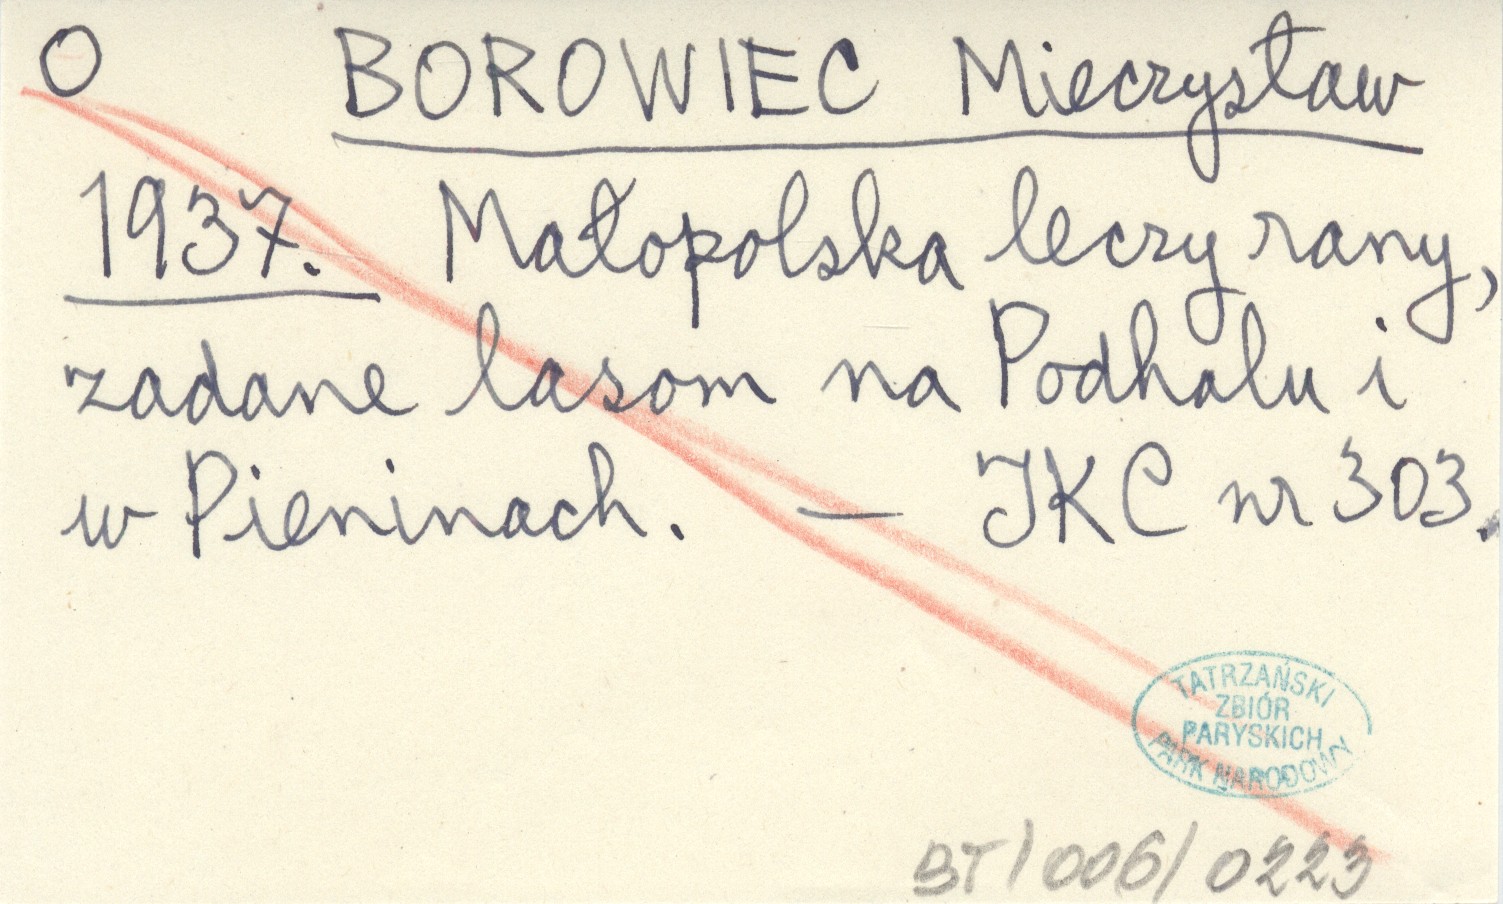 O BOROWIEC Mieczysław
1937. Małopolska leczy rany,
zadane lasom na Podhalu i
w Pieninach. — IKC nr 303.
TATRZAŃSKI
ZBIÓR
PARYSKICH
PARK NARODOWY
BT/006/0223